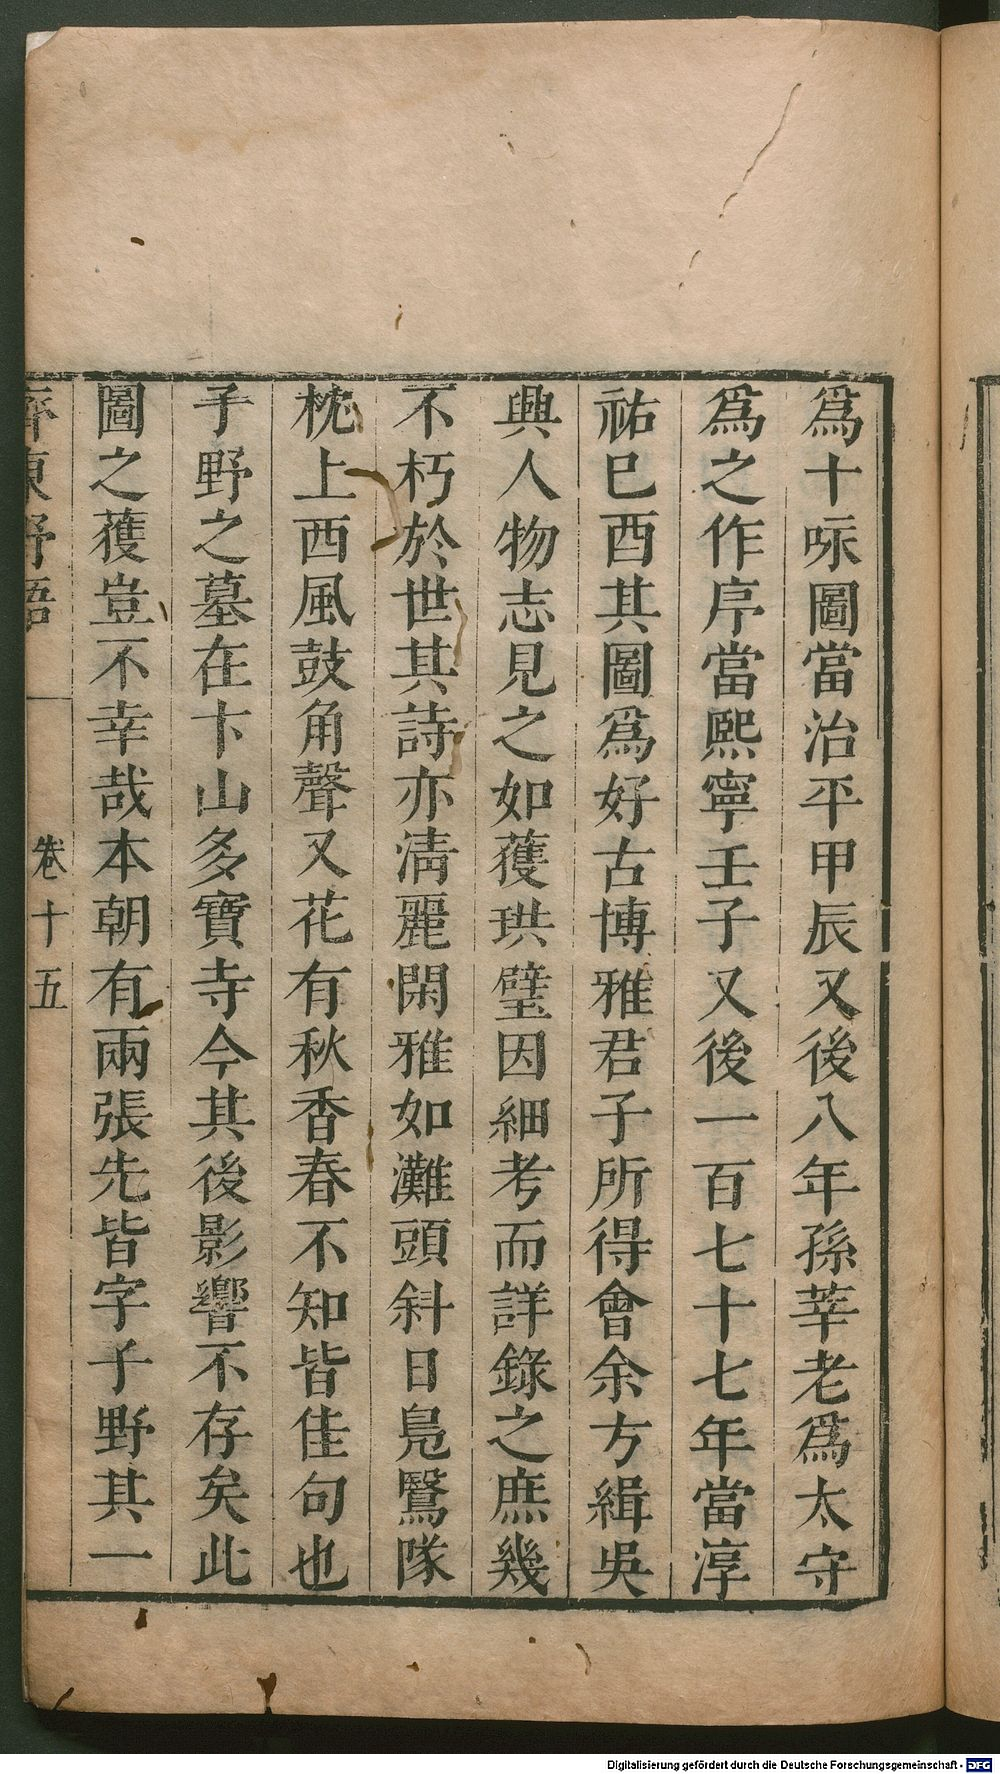 爲十咏圖當治平甲辰又後八年孫莘老爲太守
爲之作序當熙寧壬子又後一百七十七年當淳
祐巳酉其圖爲好古博雅君子所得會余方緝吳
興人物志見之如獲珙璧因細考而詳錄之庶幾
不朽於世其詩亦清麗閑雅如灘頭斜日鳬鷖隊
枕上西風鼓角聲又花有秋香春不知皆佳句也
子野之墓在卞山多寶寺今其後影響不存矣此
圖之獲豈不幸哉本朝有兩張先皆字子野其一
齊東野語 卷十五
Digitalisierung gefördert durch die Deutsche Forschungsgemeinschaft - DFG